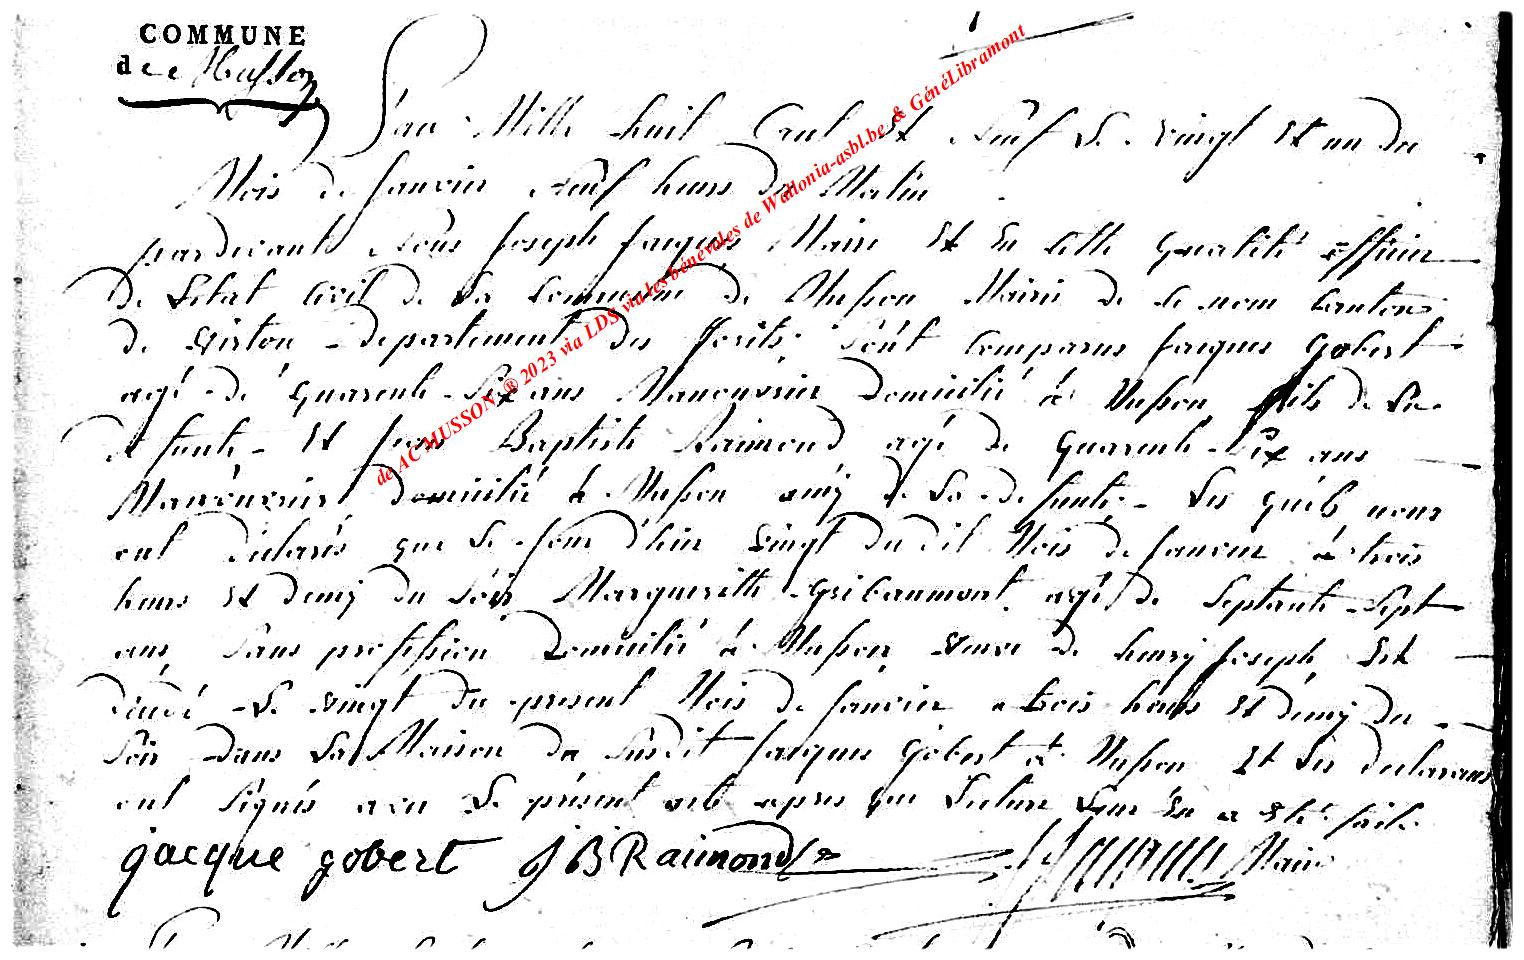 COMMUNE
de Musson
L'an Mille huit Cent et Neuf Le vingt et un du
Mois de Janvier Neuf heurs du Matin
pardevant Nous Joseph Jacques Maire et en cette qualité officier
de L'etat Civil de La Commune de Musson Mairie de ce nom Canton
de virton departement des forêts Sont Comparus Jacques gobert
agé de quarente Six ans Manouvrier Domicilié à Musson fils de La
defunte et jean Baptiste Raimond agé de quarente Six ans
Manouvrier domicilié à Musson amij de La defunte Les quels nous
ont déclarés que Le jour d'hier vingt du dit Mois de Janvier à trois
heurs et demij du Soir Margueritte gribaumont agé de Septante Sept
ans Sans profession Domicilié à Musson veuve de henrij joseph est
décédé Le vingt du present Mois de Janvier a trois heurs et demij du
Soir dans La Maison du Susdit Jacques gobert à Musson et Les declarans
ont Signés avec Le présent acte apres que Lecture Leur en a eté faite
jacque gobert JB Raimond Maire
de AC MUSSON ® 2023 via LDS via les bénévoles de Wallonia-asbl.be & GénéLibramont